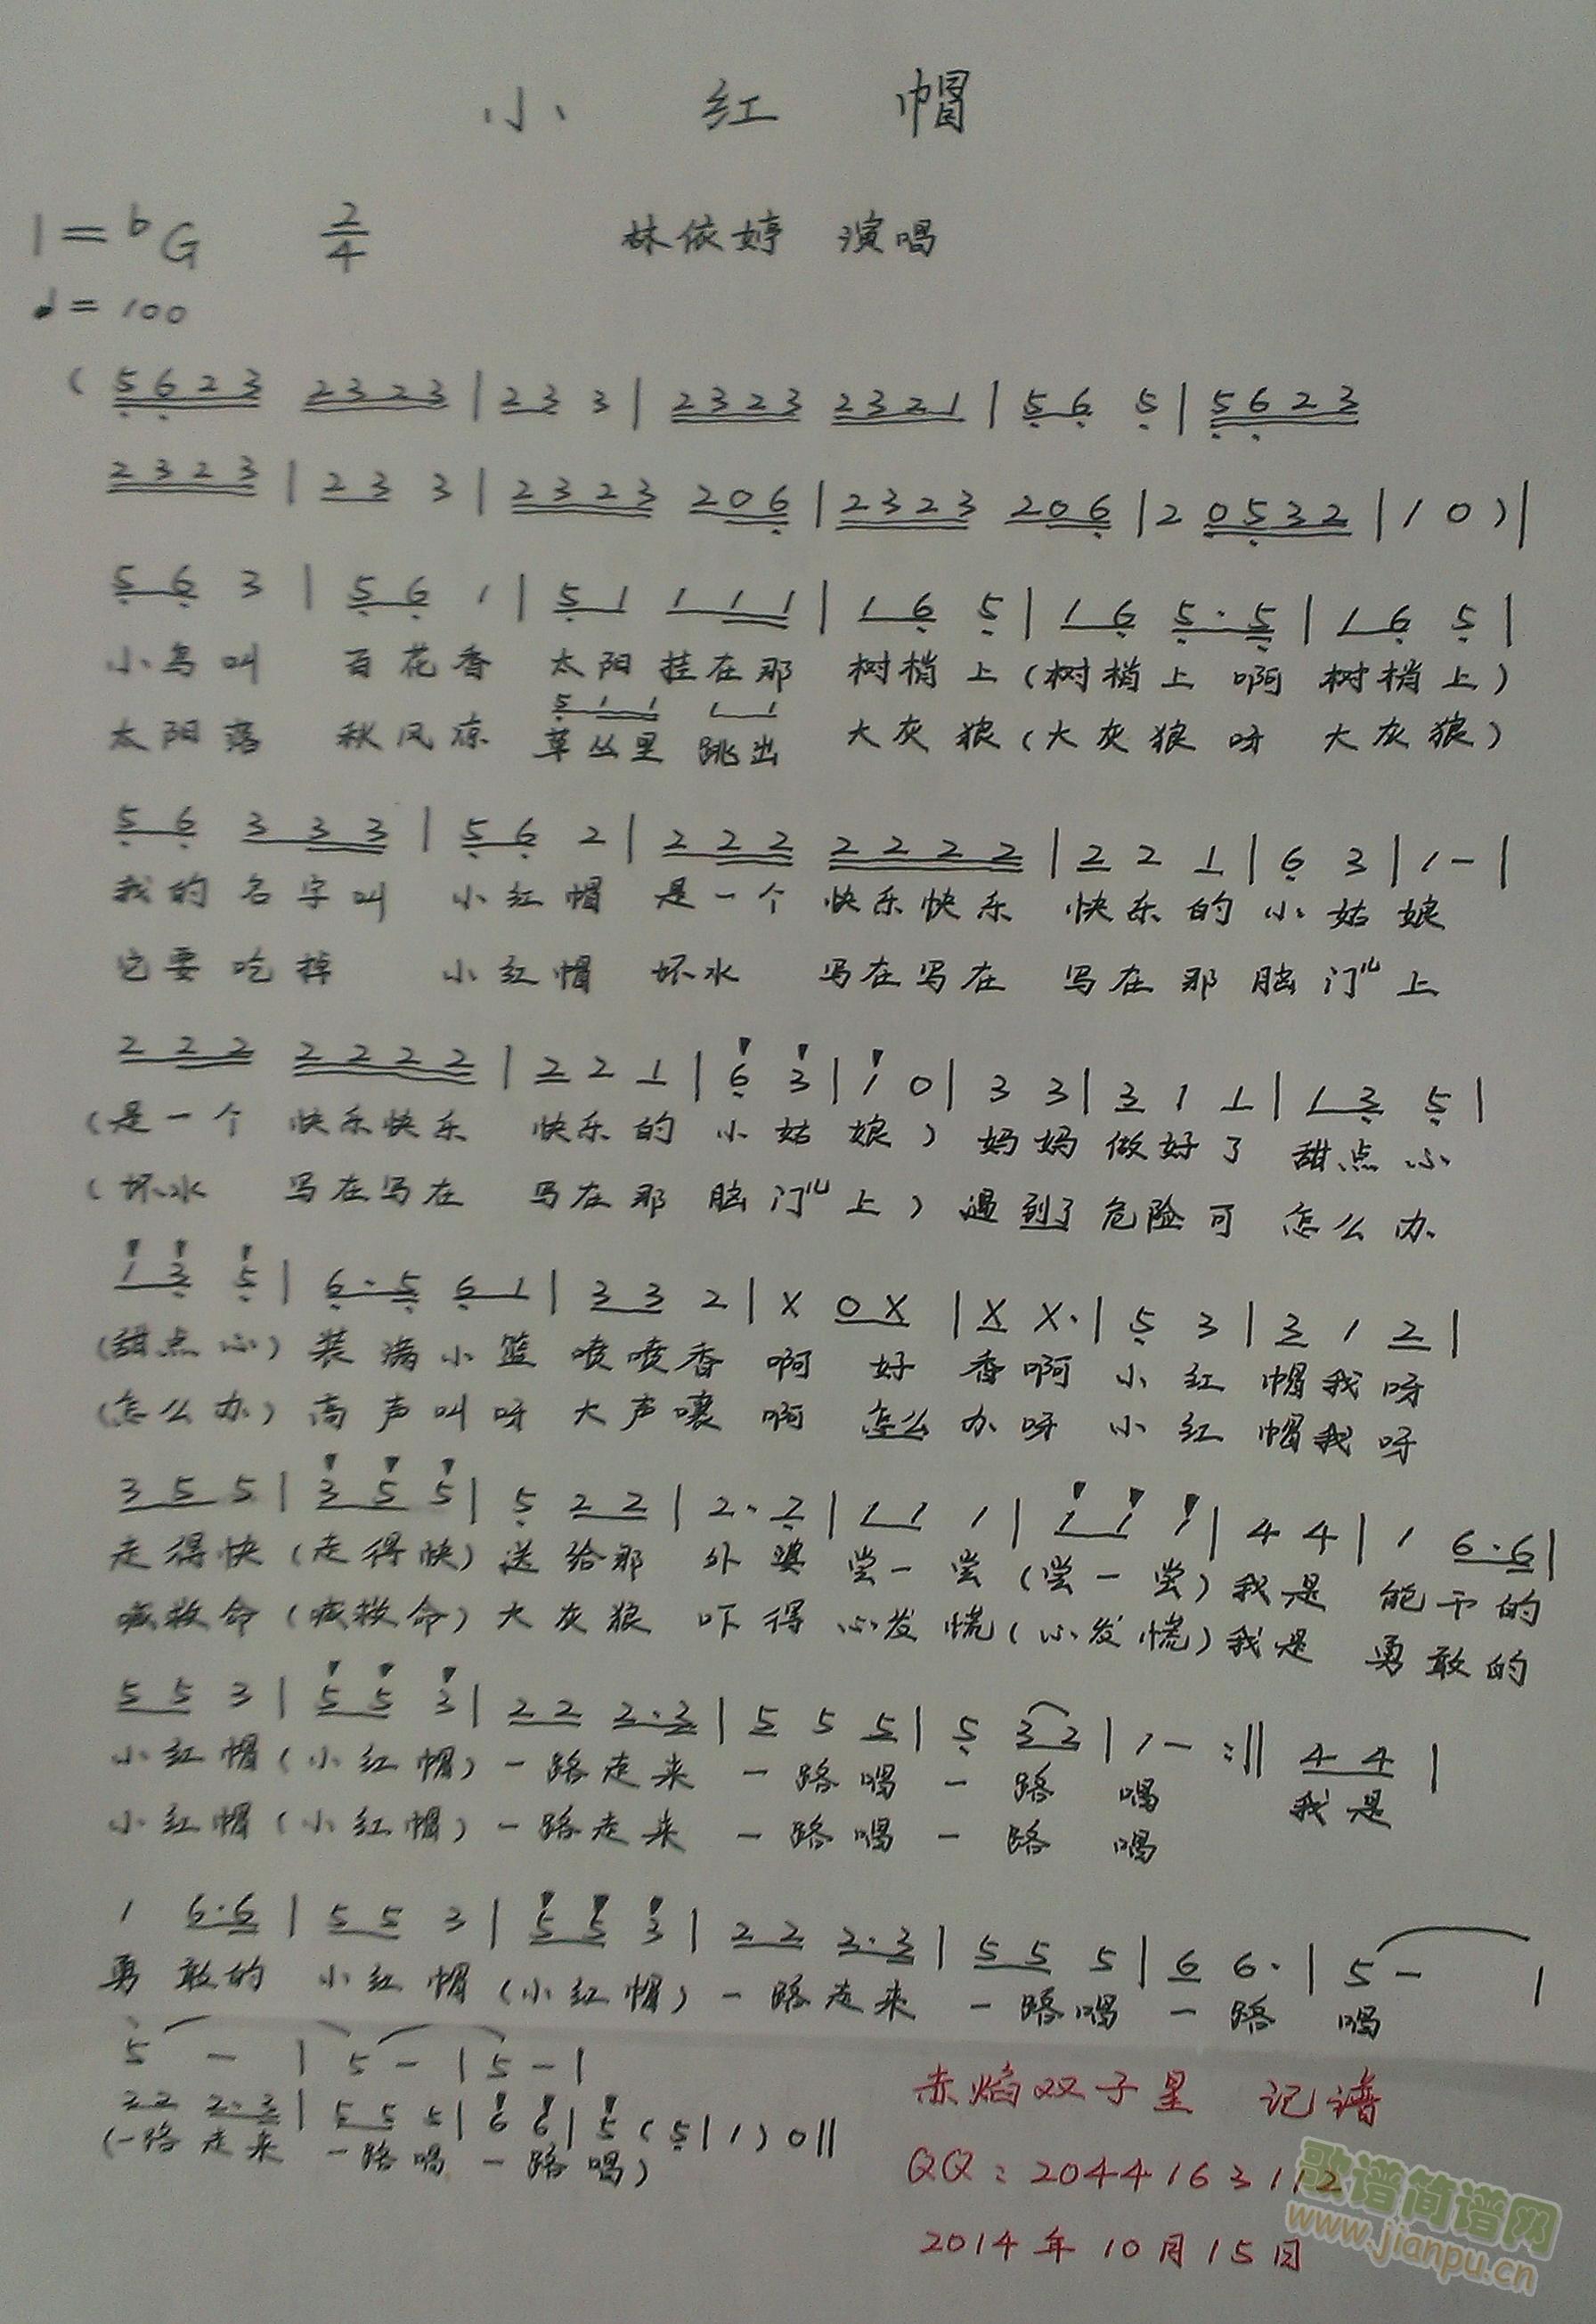 小 红 帽
1=bG 2/4 林依婷 演唱
♩=100
(5623 2323|23 3|2323 2321|56 5|5623
2323|23 3|2323 206|2323 206|2 0532|1 0)|
56 3|56 1|51 111|16 5|16 5·5|16 5|
小鸟叫 百花香 太阳挂在那 树梢上(树梢上 啊 树梢上)
511 11
太阳落 秋风凉 草丛里 跳出 大灰狼(大灰狼 呀 大灰狼)
56 333|56 2|222 2222|2 2 1|6 3|1-|
我的名字叫 小红帽 是一个 快乐快乐 快乐的小姑娘
它要吃掉 小红帽 坏水 写在写在 写在那脑门儿上
222 2222|2 2 1|6 3|1 0|3 3|3 1 1|13 5|
(是一个 快乐快乐 快乐的小姑娘)妈妈做好了 甜点心
(坏水 写在写在 写在那脑门儿上)遇到了危险可 怎么办
13 5|6·5 61|33 2|X 0X|X X·|5 3|3 1 2|
(甜点心)装满小篮 喷喷香 啊 好 香啊 小红 帽我呀
(怎么办)高声叫呀 大声嚷 啊 怎么办呀 小红 帽我呀
35 5|35 5|5 22|2·2|11 1|11 1|4 4|1 6·6|
走得快(走得快)送给那 外婆 尝一尝(尝一尝)我是 能干的
喊救命(喊救命)大灰狼 吓得 心发慌(心发慌)我是 勇敢的
55 3|55 3|22 2·3|5 5 5|5 32|1- :‖ 44|
小红帽(小红帽)一路走来 一路唱 一路 唱 我是
小红帽(小红帽)一路走来 一路唱 一路 唱
1 6·6|55 3|55 3|22 2·3|55 5|6 6·|5 - |
勇敢的 小红帽(小红帽)一路走来 一路唱 一路 唱
5 - |5 -|5 -|
22 2·3|55 5|6 6|5(5|1)0‖
(一路走来 一路唱 一路唱)
赤焰双子星 记谱
QQ:2044163112
2014年10月15日
歌谱简谱网
www.jianpu.cn